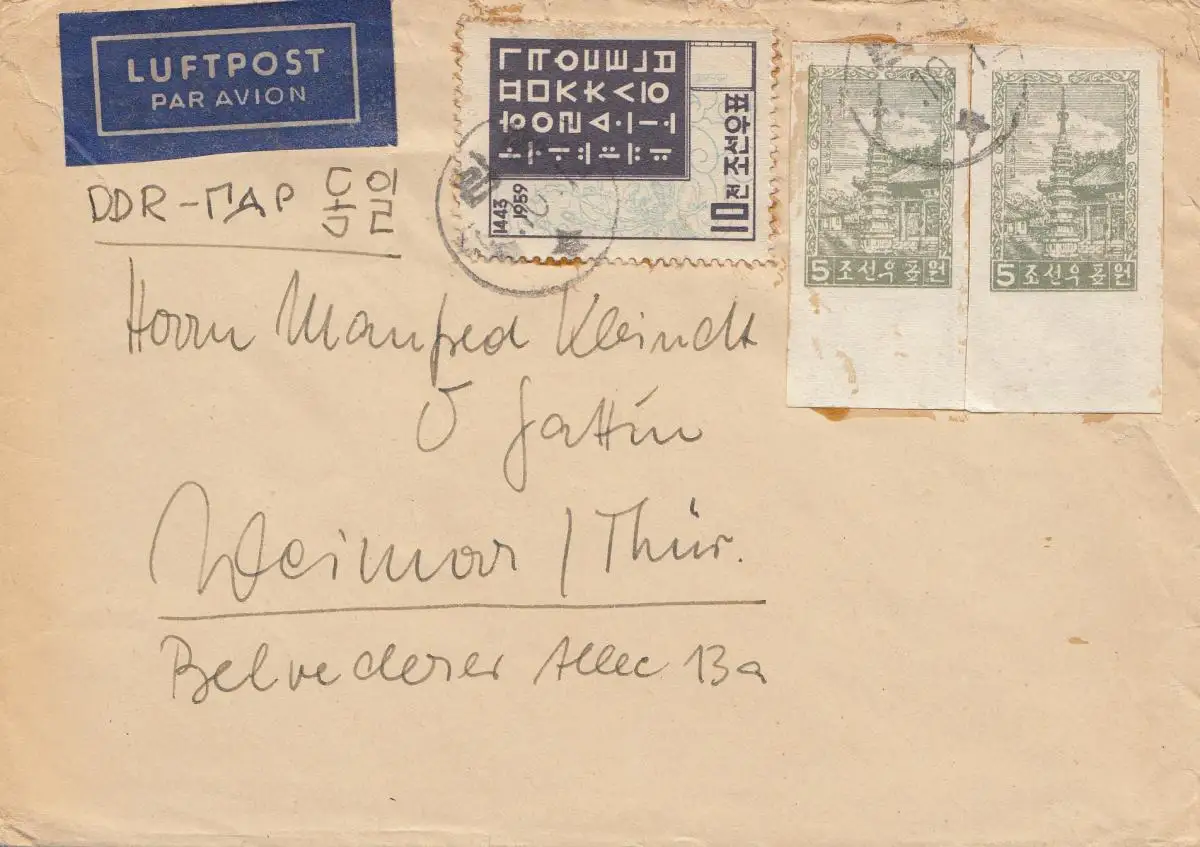 LUFTPOST
PAR AVION
1443
1959
10전 조선우표
5 조선우표 원
5 조선우표 원
DDR-ГДР 독일
Herrn Manfred Kleindt
U Gattin
Weimar / Thür.
Belvederer Allee 13a